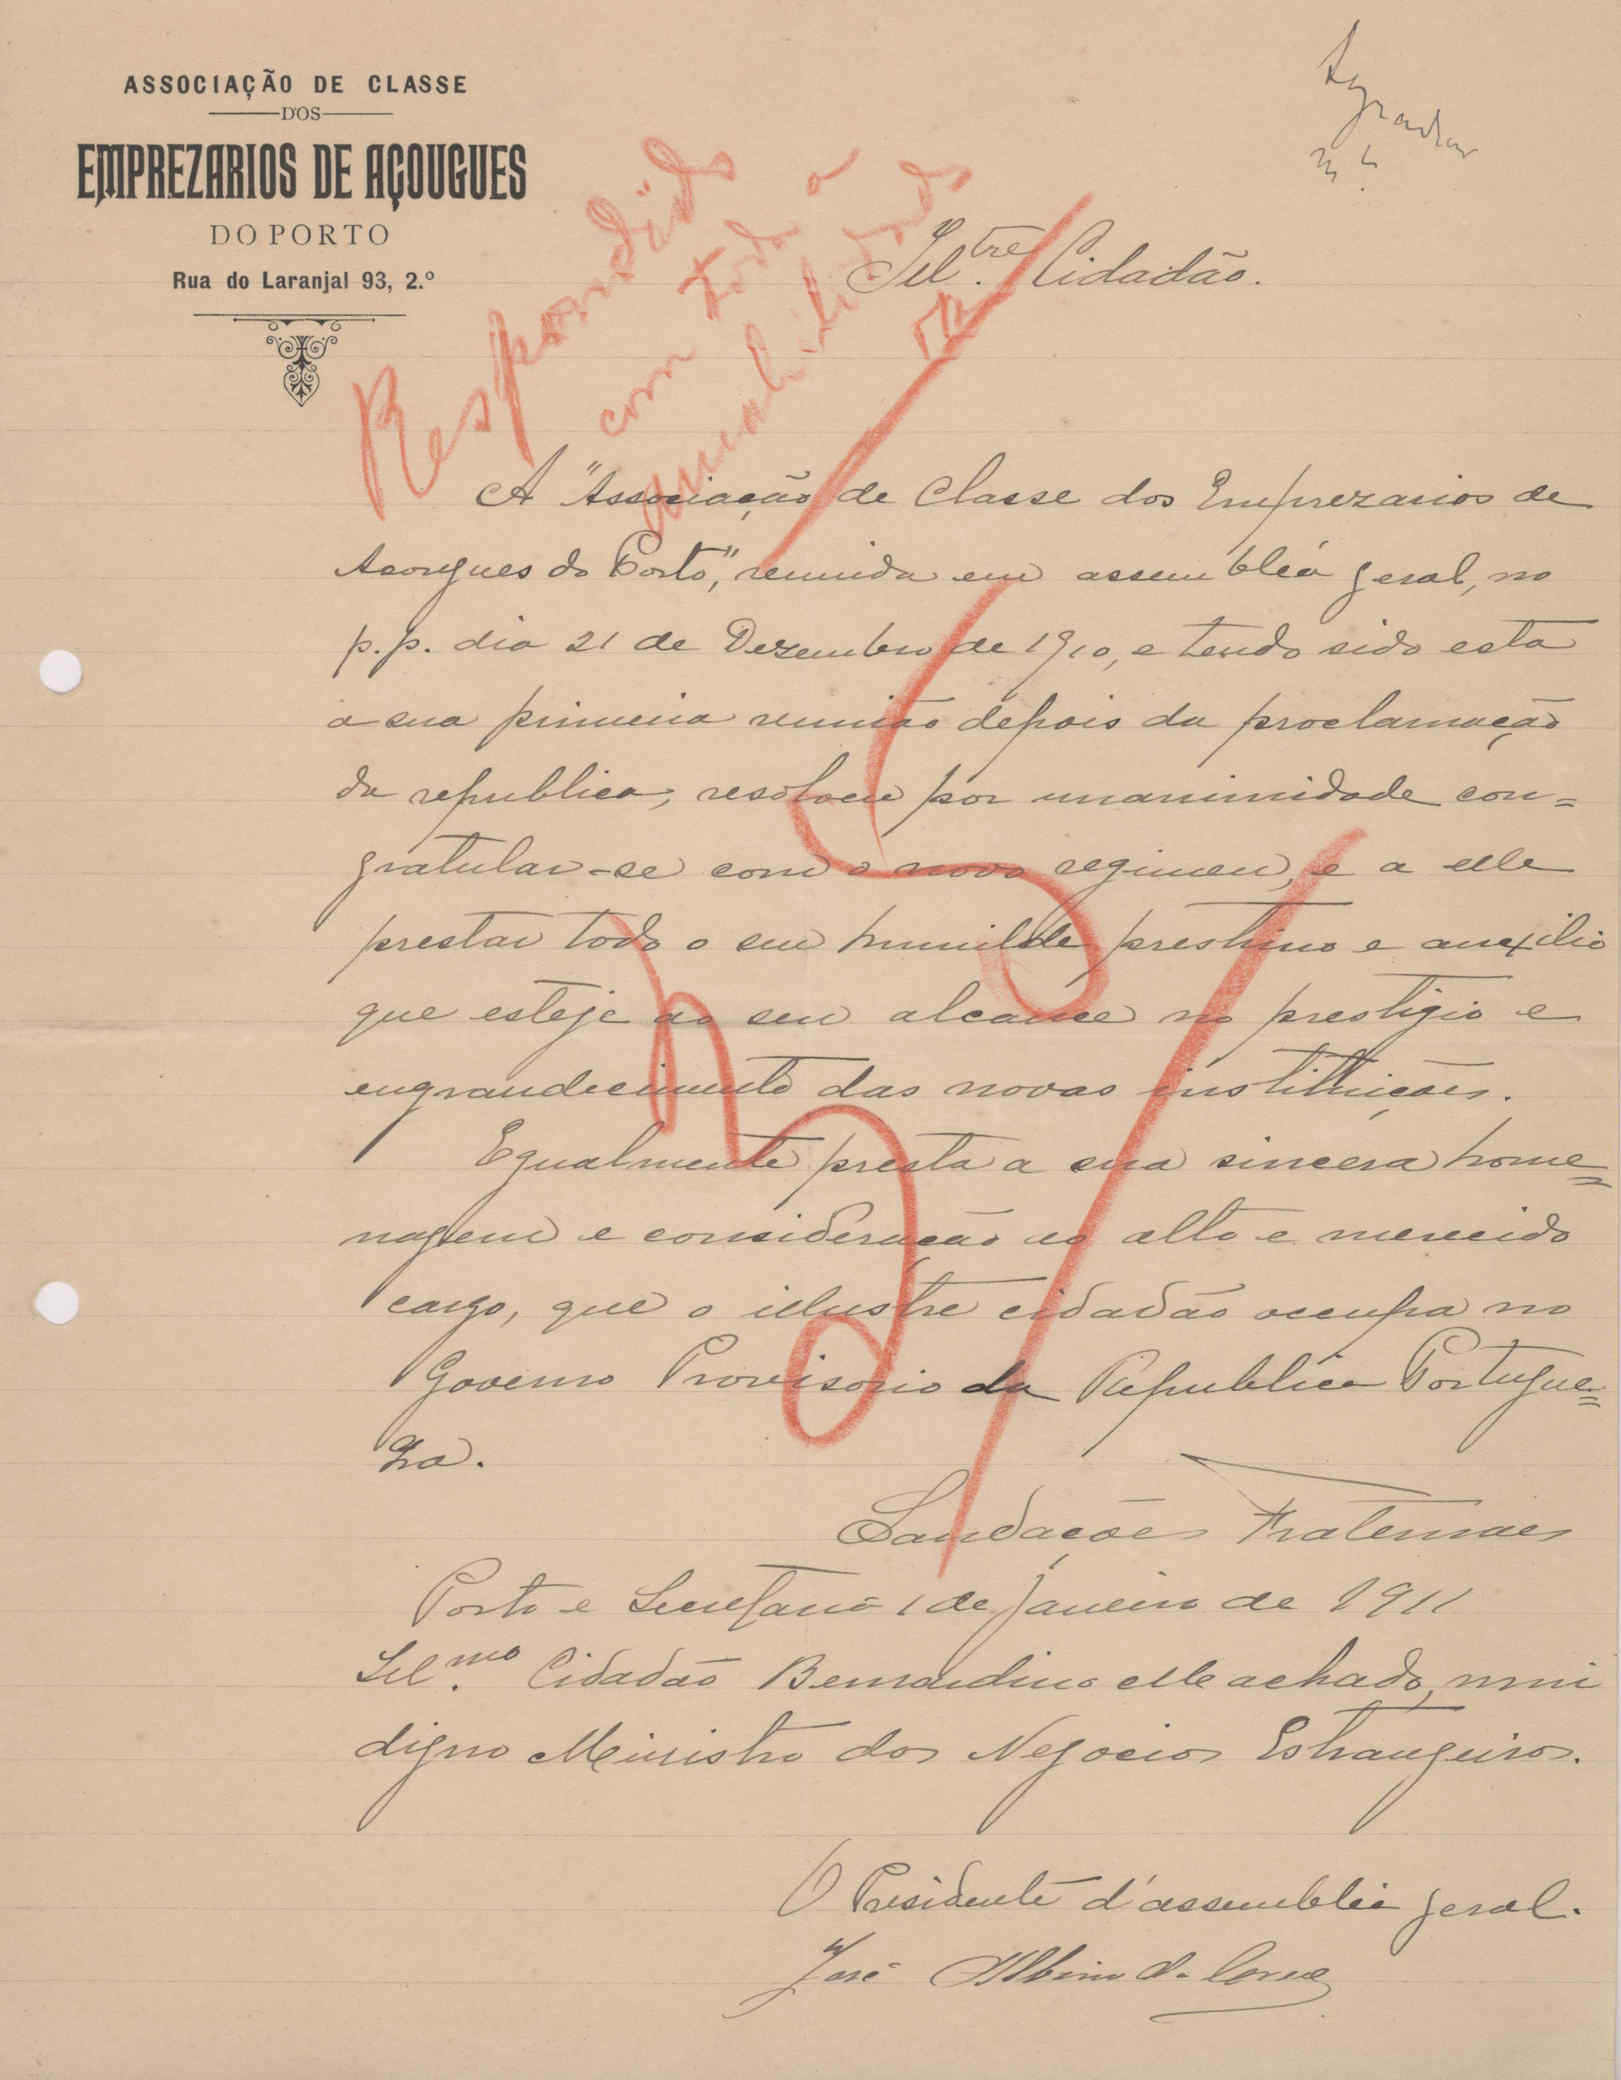 ASSOCIAÇÃO DE CLASSE
DOS
EMPREZARIOS DE AÇOUGUES
DO PORTO
Rua do Laranjal 93, 2.º
Respondido
com toda a
amabilidade
Ill.tre Cidadão.
A "Associação de Classe dos Emprezarios de
Açougues do Porto", reunida em assembléa geral, no
p.p. dia 21 de Dezembro de 1910, e tendo sido esta
a sua primeira reunião depois da proclamação
da republica, resolveu por unanimidade con=
gratular-se com o novo regimen, e a elle
prestar todo o seu humilde prestimo e auxilio
que esteje ao seu alcance no prestigio e
engrandecimento das novas instituições.
Egualmente presta a sua sincera home=
nagem e consideração ao alto e merecido
cargo, que o illustre cidadão occupa no
Governo Provisorio da Republica Portugue=
za.
Saudações Fraternaes
Porto e Secretaria 1 de Janeiro de 1911
Ill.mo Cidadão Bernardino Machado, mui
digno Ministro dos Negocios Estrangeiros.
O Presidente d'assembleia geral.
José Albino da